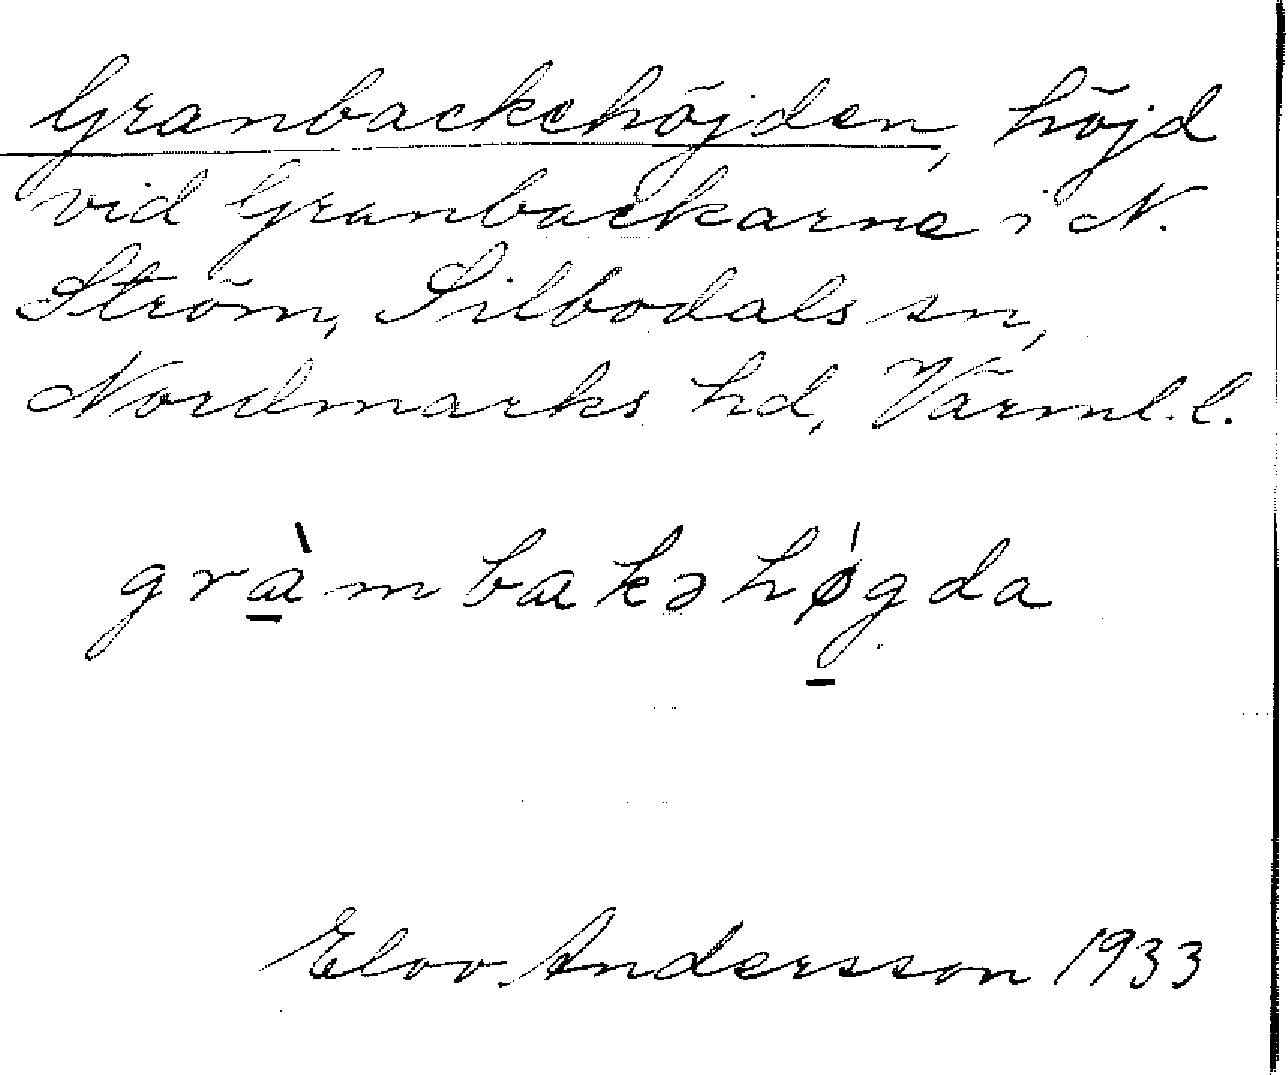 Granbackehöjden, höjd
vid Granbackarna i N.
Ström, Silbodals sn,
Nordmarks hd, Värml. l.
grà̱mbakəhǿ̱gda
Elov Andersson 1933